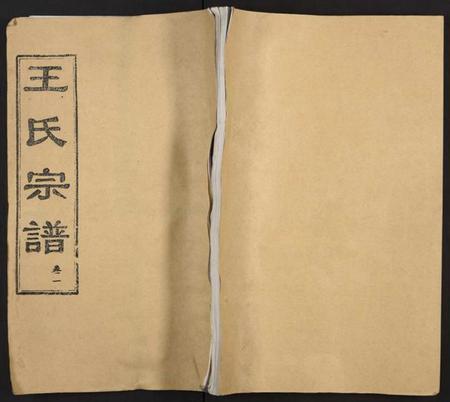 王氏宗譜
卷二